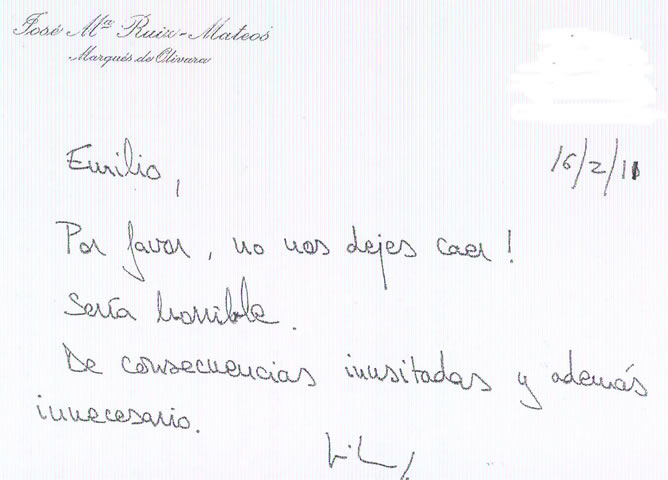 José Mª Ruiz-Mateos
Marqués de Olivara
16/2/11
Emilio,
Por favor, no nos dejes caer!
Sería horrible.
De consecuencias inusitadas y además
innecesario.